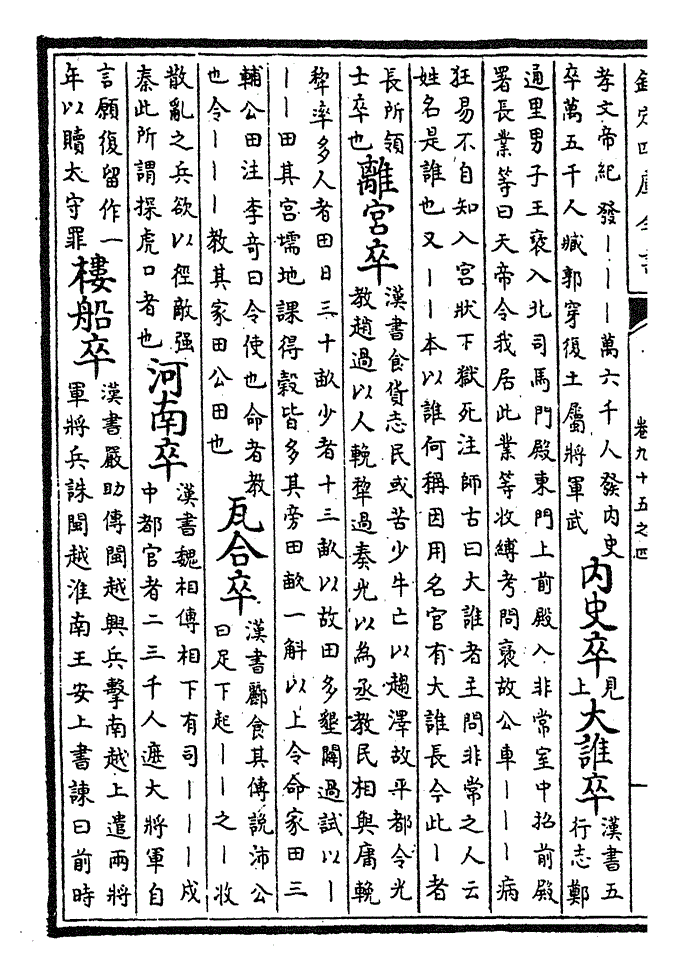 欽定四庫全書
卷九十五之四
孝文帝紀發丨丨丨萬六千人發内史
卒萬五千人臧郭穿復土屬將軍武
内史卒
見
上
大誰卒
漢書五
行志鄭
通里男子王褒入北司馬門殿東門上前殿入非常室中招前殿
署長業等曰天帝令我居此業等收縛考問褒故公車丨丨丨病
狂易不自知入宮狀下獄死注師古曰大誰者主問非常之人云
姓名是誰也又丨丨本以誰何稱因用名官有大誰長今此丨者
長所領
士卒也
離宮卒
漢書食貨志民或苦少牛亡以趨澤故平都令光
教趙過以人輓犂過奏光以為丞教民相與庸輓
犂率多人者田日三十畝少者十三畝以故田多墾闢過試以丨
丨丨田其宮壖地課得穀皆多其旁田畝一斛以上令命家田三
輔公田注李奇曰令使也命者教
也令丨丨丨教其家田公田也
瓦合卒
漢書酈食其傳說沛公
曰足下起丨丨之丨收
散亂之兵欲以徑敵强
秦此所謂探虎口者也
河南卒
漢書魏相傳相下有司丨丨丨戍
中都官者二三千人遮大將軍自
言願復留作一
年以贖太守罪
樓船卒
漢書嚴助傳閩越興兵擊南越上遣兩將
軍將兵誅閩越淮南王安上書諫曰前時